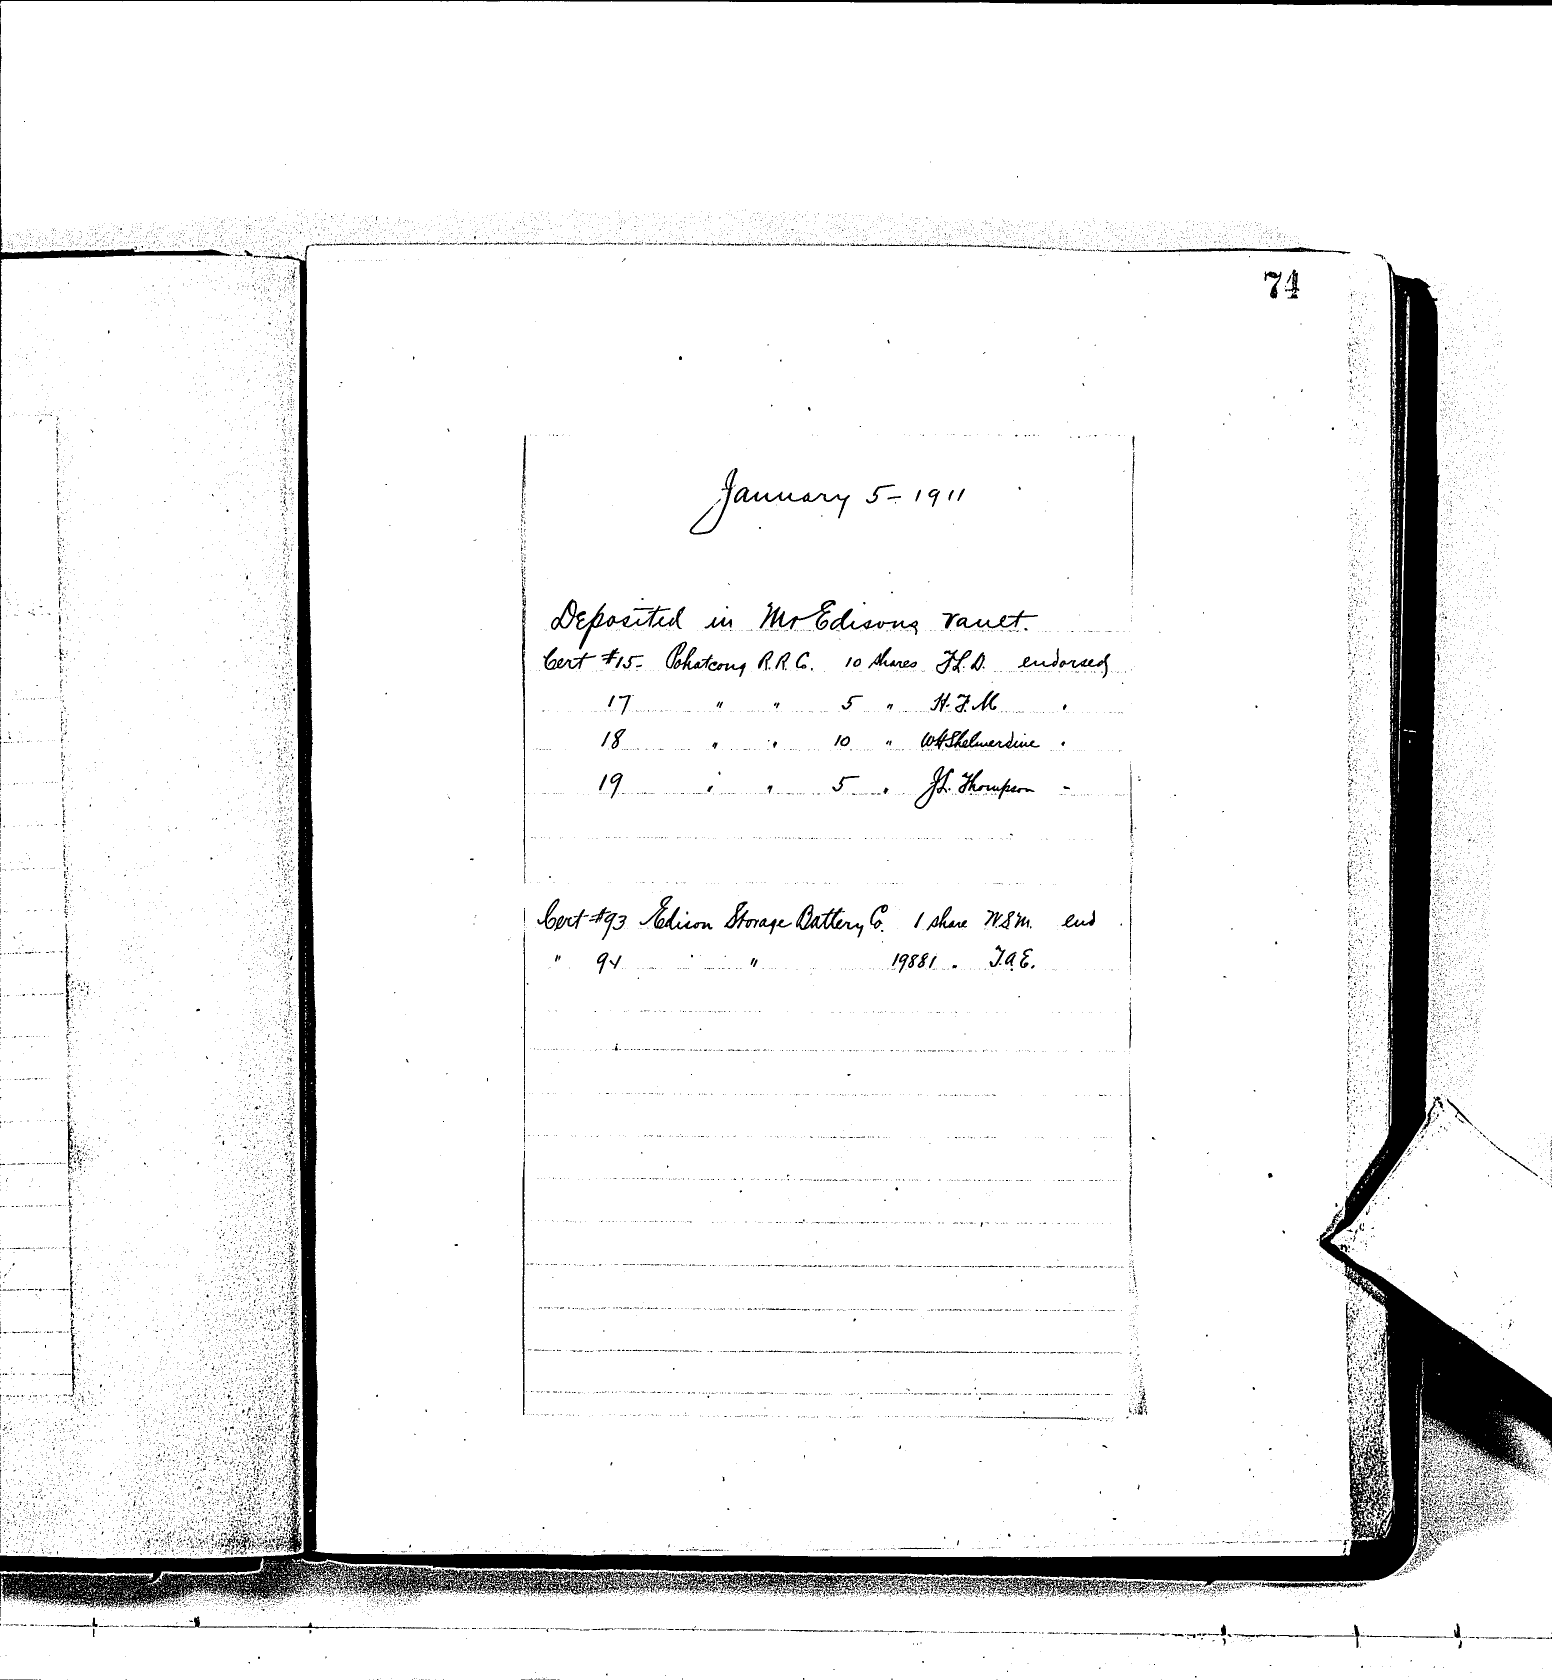 74
January 5-1911
Deposited in Mr Edisons vault.
Cert #15- Pohatcong R.R.C. 10 shares F.L.D. endorsed
17 " " 5 " H.F.M "
18 " " 10 " W H Shelmerdine "
19 " " 5 " J.L. Thompson "
Cert #93 Edison Storage Battery Co. 1 share W.S.M. end
" 94 " " 19881 " T.A.E.